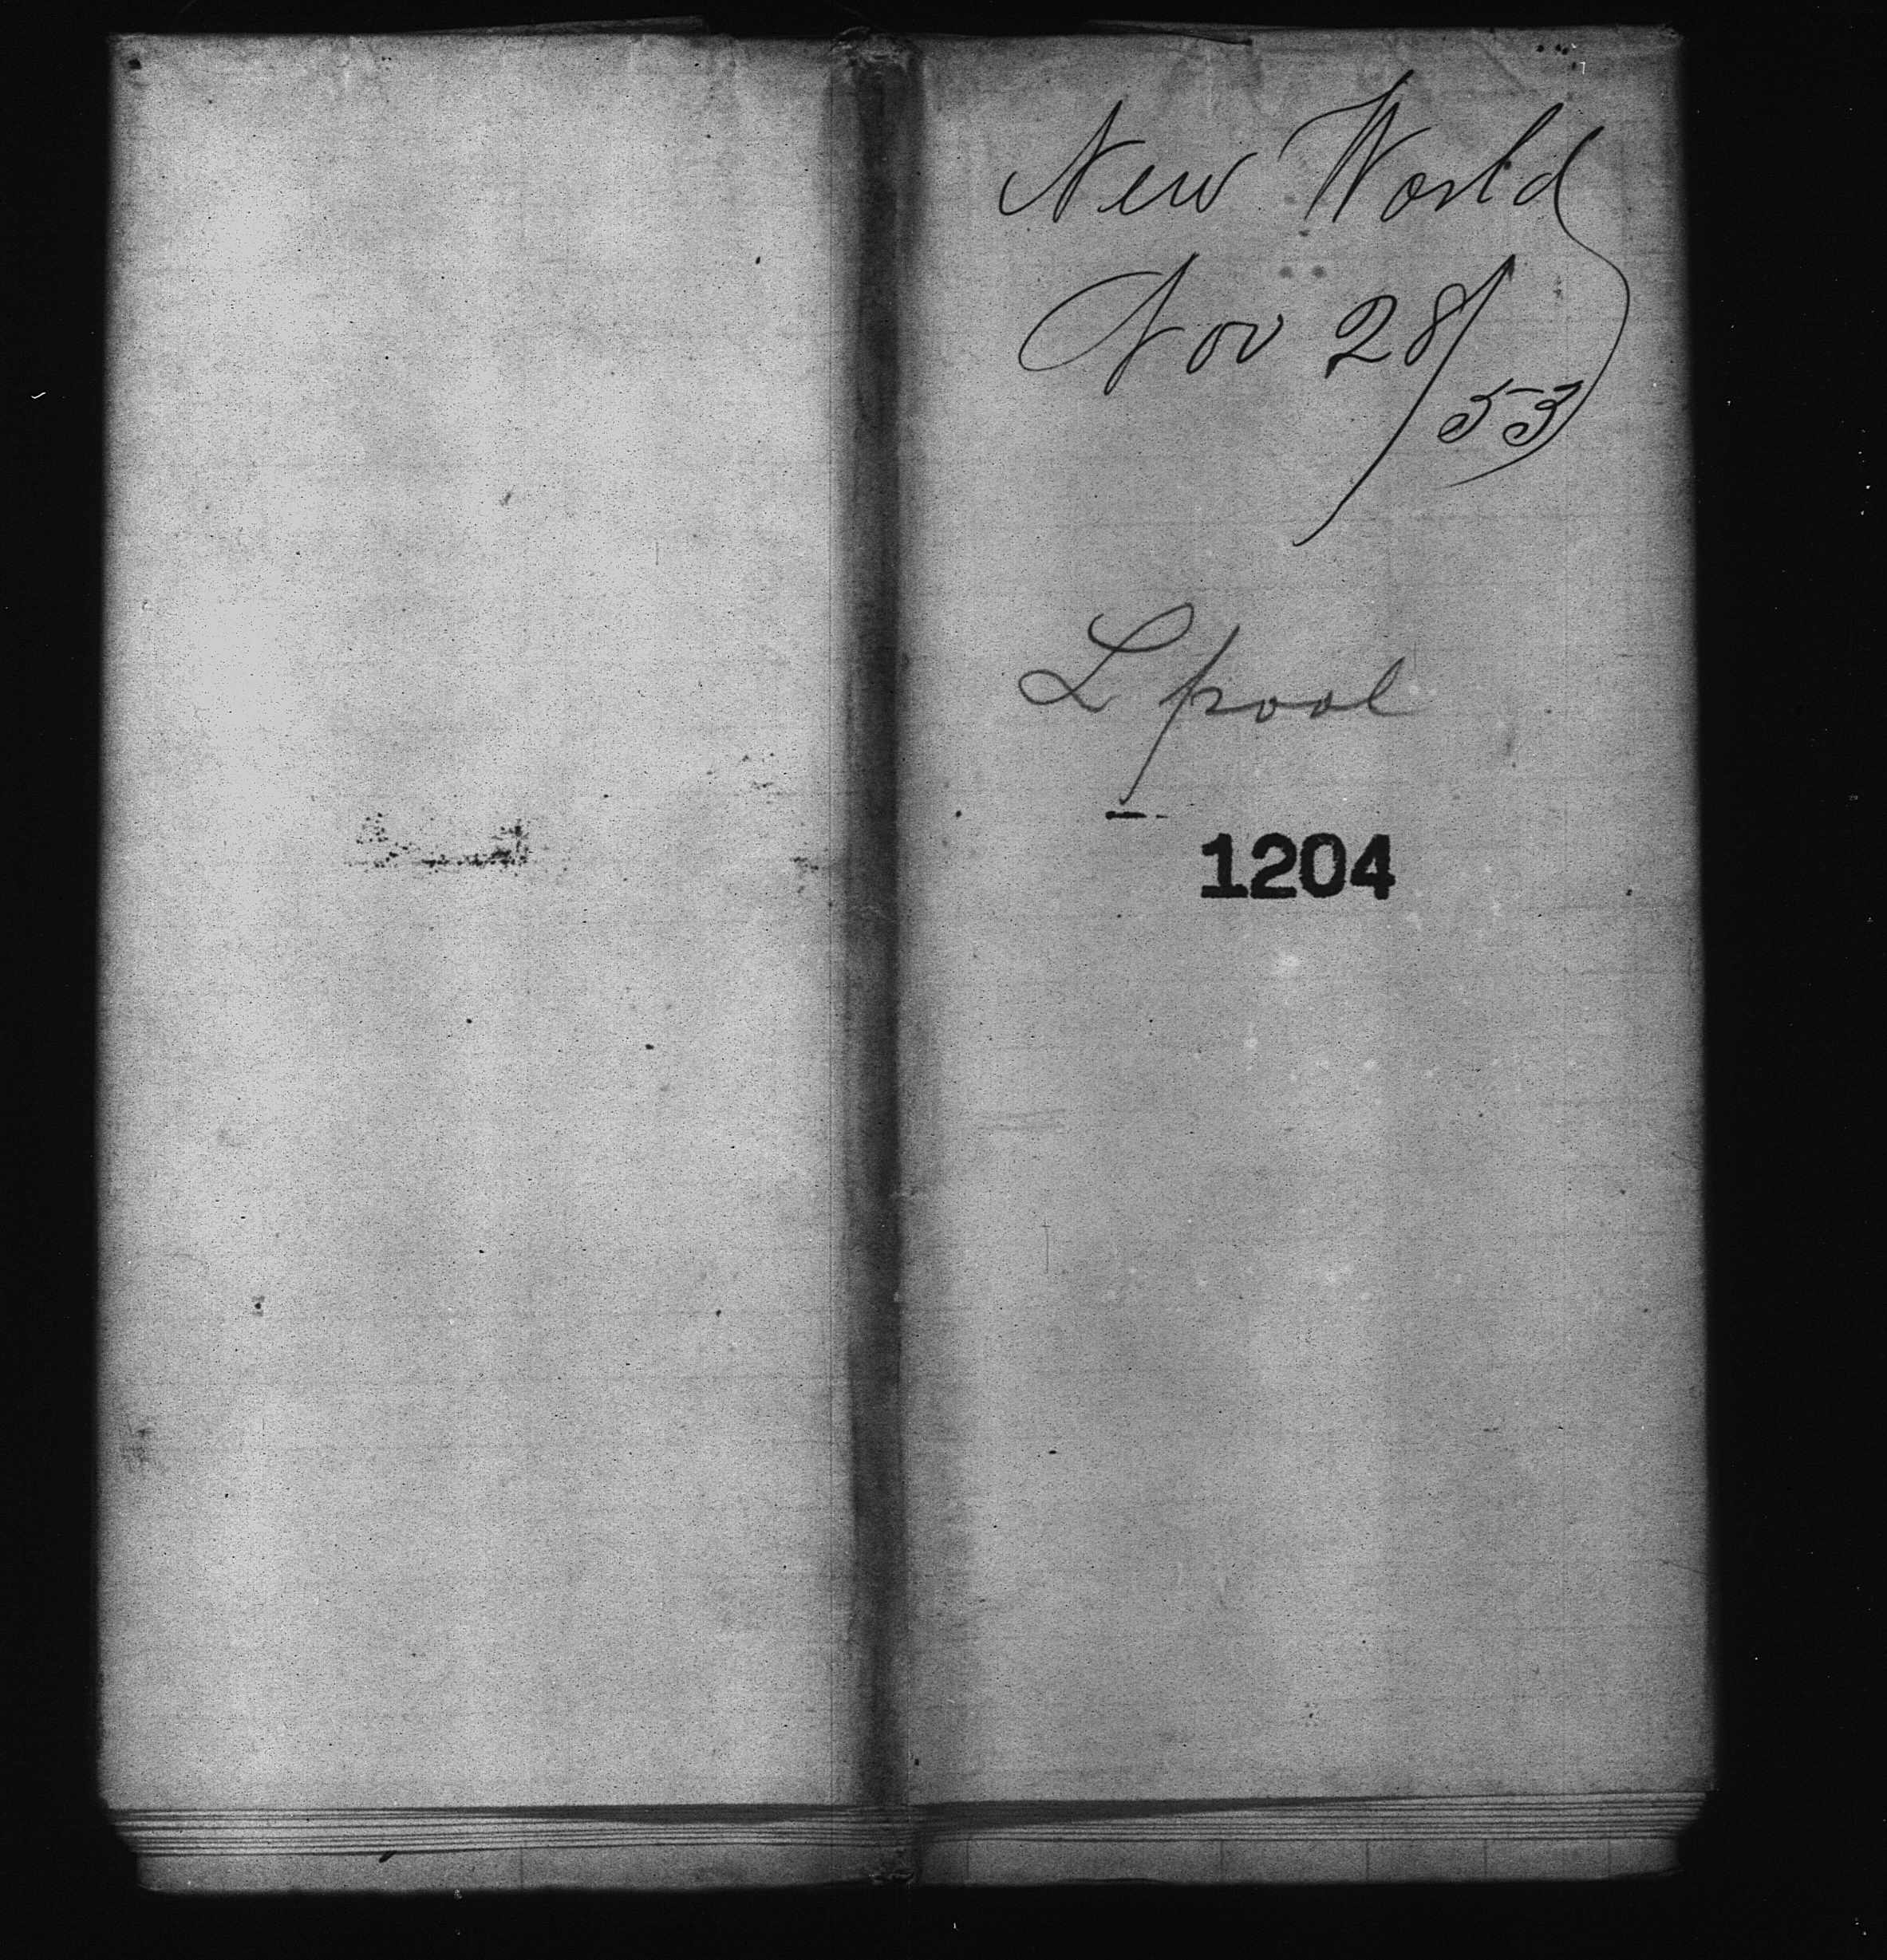 New World
Nov 28/53
L pool
1204